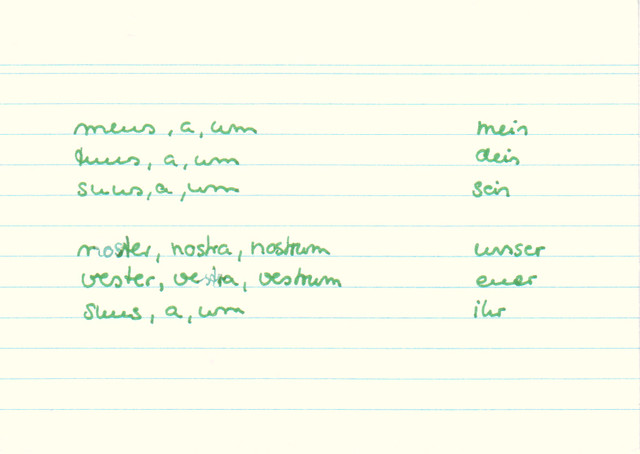 meus, a, um mein
tuus, a, um dein
suus, a, um sein
noster, nostra, nostrum unser
vester, vestra, vestrum euer
suus, a, um ihr